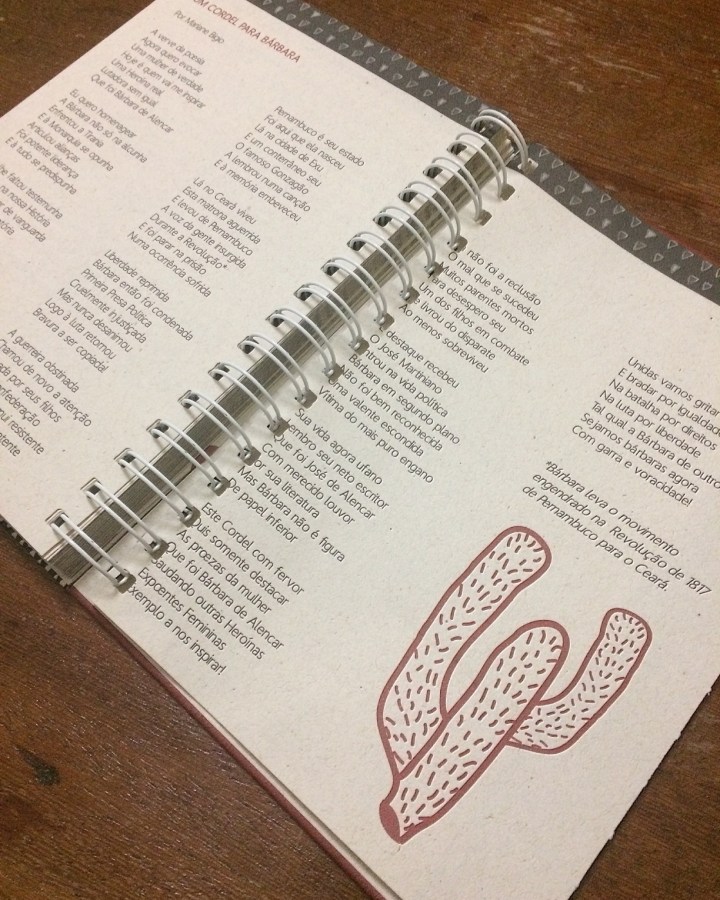 UM CORDEL PARA BÁRBARA
Por Mariane Bigio
A verve da poesia
Agora quero evocar
Uma mulher de verdade
Hoje é quem vai me inspirar
Uma Heroína real
Lutadora sem igual
Que foi Bárbara de Alencar
Eu quero homenagear
A Bárbara não só na alcunha
Enfrentou a Tirania
E à Monarquia se opunha
Articulou alianças
Foi potente liderança
E a tudo se predispunha
lhe faltou testemunha
na nossa História
de vanguarda
Liberdade reprimida
Bárbara então foi condenada
Primeira Presa Política
Cruelmente injustiçada
Mas nunca desanimou
Logo à luta retornou
Bravura a ser copiada!
A guerreira obstinada
Chamou de novo a atenção
por seus filhos
resistente
Pernambuco é seu estado
Foi aqui que ela nasceu
Lá na cidade de Exu
E um conterrâneo seu
O famoso Gonzagão
A lembrou numa canção
E à memória embeveceu
Lá no Ceará viveu
Esta matrona aguerrida
E levou de Pernambuco
A voz da gente insurgida
Durante a Revolução*
E foi parar na prisão
Numa ocorrência sofrida
não foi a reclusão
O mal que se sucedeu
Muitos parentes mortos
Para desespero seu
Um dos filhos em combate
livrou do disparate
Ao menos sobreviveu
destaque recebeu
O José Martiniano
Entrou na vida política
Bárbara em segundo plano
Não foi bem reconhecida
Uma valente escondida
Vítima do mais puro engano
Sua vida agora ufano
Lembro seu neto escritor
Que foi José de Alencar
Com merecido louvor
Por sua literatura
Mas Bárbara não é figura
De papel inferior
Este Cordel com fervor
Quis somente destacar
As proezas da mulher
Que foi Bárbara de Alencar
Saudando outras Heroínas
Expoentes Femininas
Exemplo a nos inspirar!
Unidas vamos gritar
E bradar por igualdade
Na batalha por direitos
Na luta por liberdade
Tal qual a Bárbara de outrora
Sejamos bárbaras agora
Com garra e voracidade!
*Bárbara leva o movimento
engendrado na Revolução de 1817
de Pernambuco para o Ceará.